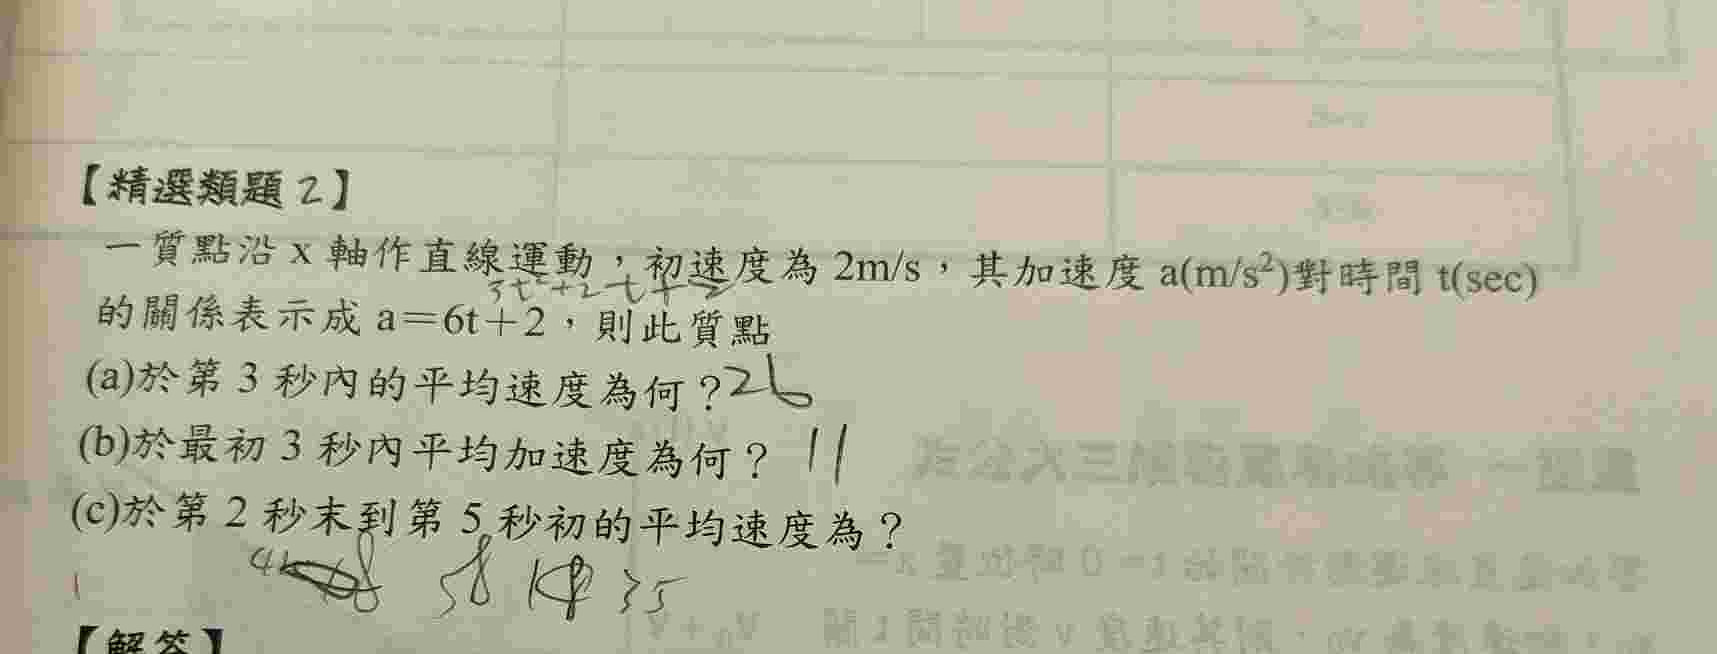 【精選類題 2】
一質點沿 x 軸作直線運動，初速度為 2m/s，其加速度 a(m/s²)對時間 t(sec)
3t²+2t+2
的關係表示成 a＝6t＋2，則此質點
(a)於第 3 秒內的平均速度為何？26
(b)於最初 3 秒內平均加速度為何？ 11
(c)於第 2 秒末到第 5 秒初的平均速度為？
58 35
【解答】